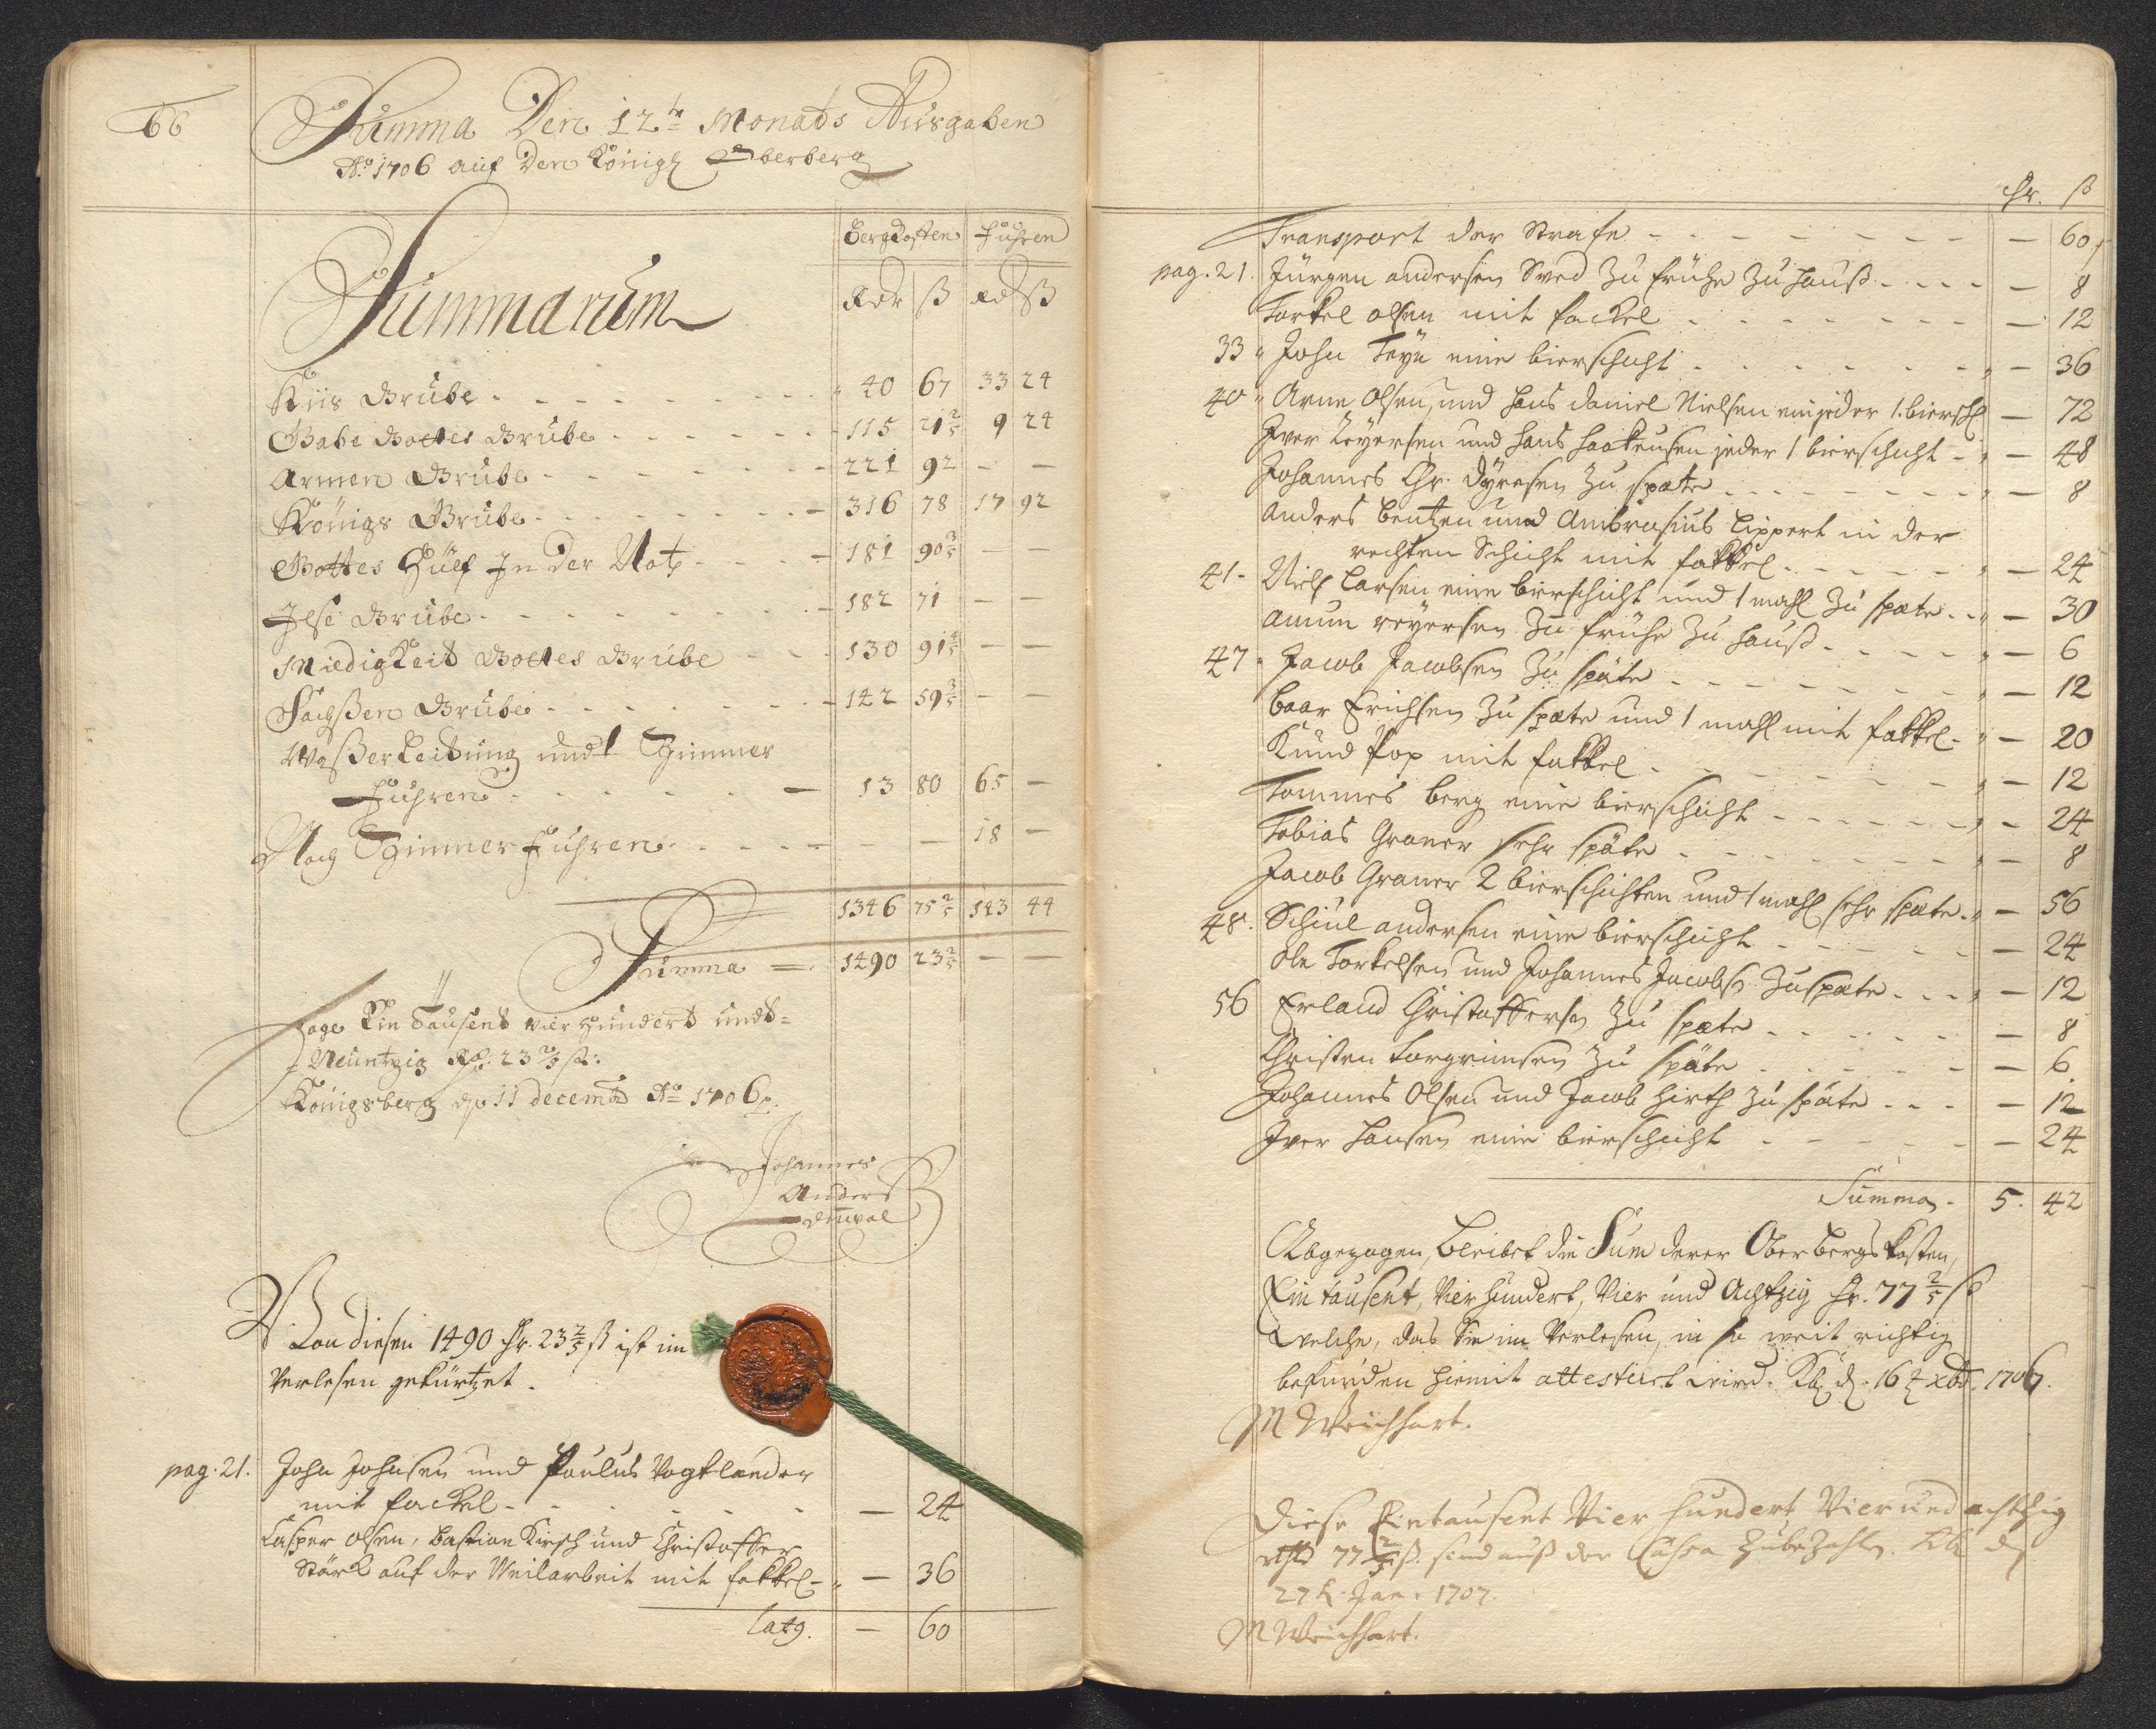 66
Summa Den 12te Monats Ausgaben
Ao. 1706 auf Den Königl Oberberg
BergKosten Fuhren
Summarum
Rdr ß Rd ß
Kiis Grube - 40 67 33 24
Gabe Gottes Grube - 115 21 2/5 9 24
Armen Grube - 221 92 - -
Königs Grube - 316 78 17 92
Gottes Hülf In der Noth - 181 90 3/5 - -
Grube - 182 71 - -
Miedigkeit Gottes Grube - 130 91 4/5 - -
Sachßen Grube - 142 59 3/5 - -
Waßerleitung undt Zimmer
Fuhren - 13 80 65 -
Noch Zimmer Fuhren - - - 18 -
1346 75 2/5 143 44
Summa 1490 23 2/5 - -
Sage Ein Tausent vier Hundert undt
Neuntzig Rd: 23 2/5 ß:
Königsberg 11 decemb Ao 1706
Johannes
Anders
Von diesen 1490 Hr. 23 2/5 ß ist im
Verlesen gekürtzet.
pag. 21. John Johnsen und Paulus Vogtlænder
mit fackel - - 24
Casper Olsen, Bastian Kirsch und Christoffer
Stärck auf der Weilarbeit mit fakkel - - 36
latg. - 60
Hr. ß
Transport der Strafe - - 60
pag. 21. Jürgen andersen Sved Zu frühe Zu hauß - - 8
Torkel olsen mit fackel - - 12
33 John eine bierschicht - - 36
40 Arne Olsen, und Hans Daniel Nielsen ein jeder 1. biersch - 72
Iver Reyersen und Hans Haakensen jeder 1 bierschicht - - 48
Johannes Chr. Dyresen Zu spæte - - 8
Anders Bentzen und Ambrosius Lippert in der
rechten Schicht mit fakkel - - 24
41 - Niels Larsen eine bierschicht und 1 mahl Zu spæte - - 30
Amun reyersen Zu frühe Zu hauß - - 6
47 Jacob Jacobsen Zu späte - - 12
Baar Erichsen Zu spæte und 1 mahl mit fakkel - - 20
Knud Pop mit fakkel - - 12
Tommes Berg eine bierschicht - - 24
Tobias Graner sehr späte - - 8
Jacob Graner 2 bierschichten und 1 mahl sehr spæte - - 56
48. andersen eine bierschicht - - 24
Ole Torkelsen und Johannes Jacobs Zu spæte - - 12
56 Erland Christoffersen Zu spæte - - 8
Christen Torgrimsen Zu späte - - 6
Johannes Olsen und Jacob Hirth Zu späte - - 12
Iver Hansen eine bierschicht - - 24
Summa - 5. 42
Abgezogen, bleibet die Sum derer Oberbergskosten,
Ein tausent, Vier hundert, Vier und Achtzig Hr. 77 2/5 ß
Welche, das Sie im Verlesen, in so weit richtig
befunden hiemit attestiert wird. Kb. d. 16 t xbr. 1706.
M Weichhart.
Diese Eintausent Vier hundert Vier und achtzig
rthd 77 2/5 ß. sind auß der Cassa Zubezahlen. Kb d
27 t. Jan. 1707.
M Weichhart.